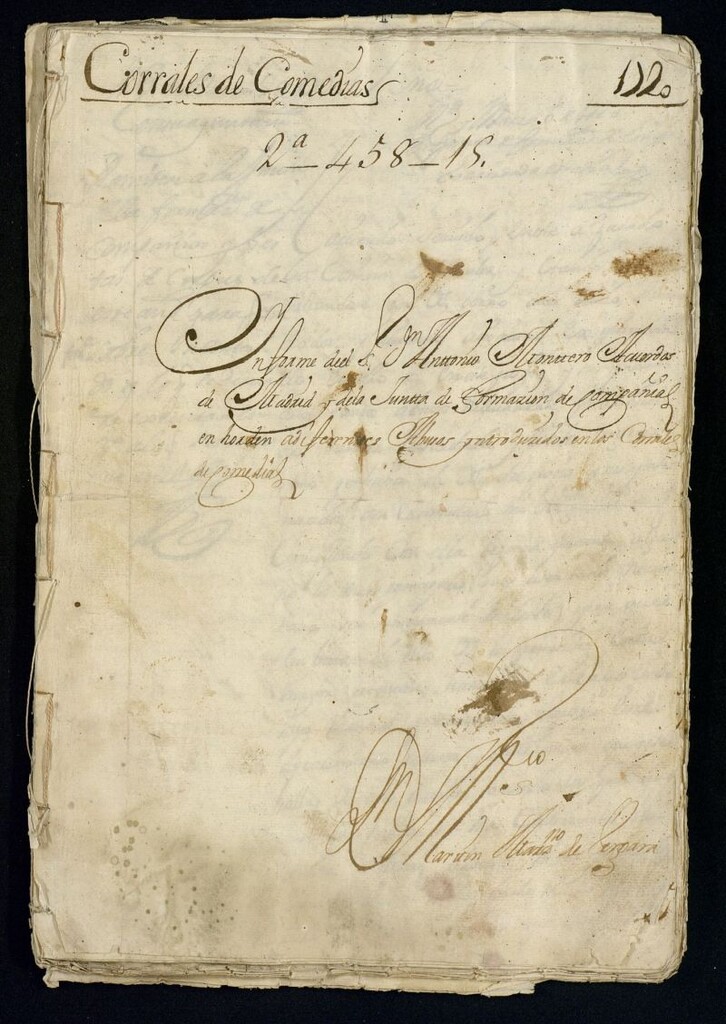 Corrales de Comedias 1720
2ª - 458 - 15.
Informe del S. Dn Antonio Montero Acuerdos
de Madrid y dela Junta de Formazion de compañias
en horden adiferentes Abusos yntroduzidos en los Corrales
de comedias
Martin de Vergara